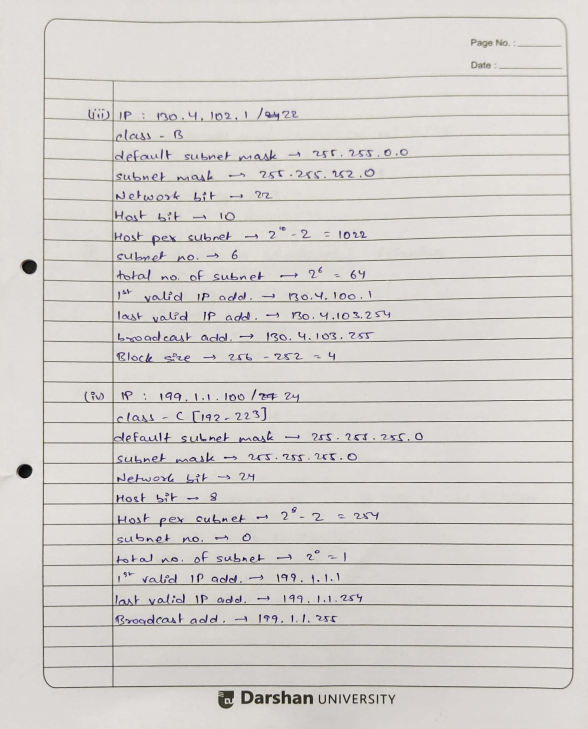 Page No. :
Date :
(iii) IP : 130.4.102.1 /22
class - B
default subnet mask → 255.255.0.0
subnet mask → 255.255.252.0
Network bit → 22
Host bit → 10
Host per subnet → 2¹⁰ - 2 = 1022
subnet no. → 6
total no. of subnet → 2⁶ = 64
1st valid IP add. → 130.4.100.1
last valid IP add. → 130.4.103.254
broadcast add. → 130.4.103.255
Block size → 256 - 252 = 4
(iv) IP : 199.1.1.100 /24
class - C [192-223]
default subnet mask → 255.255.255.0
subnet mask → 255.255.255.0
Network bit → 24
Host bit → 8
Host per subnet → 2⁸ - 2 = 254
subnet no. → 0
total no. of subnet → 2⁰ = 1
1st valid IP add. → 199.1.1.1
last valid IP add. → 199.1.1.254
Broadcast add. → 199.1.1.255
DU Darshan UNIVERSITY